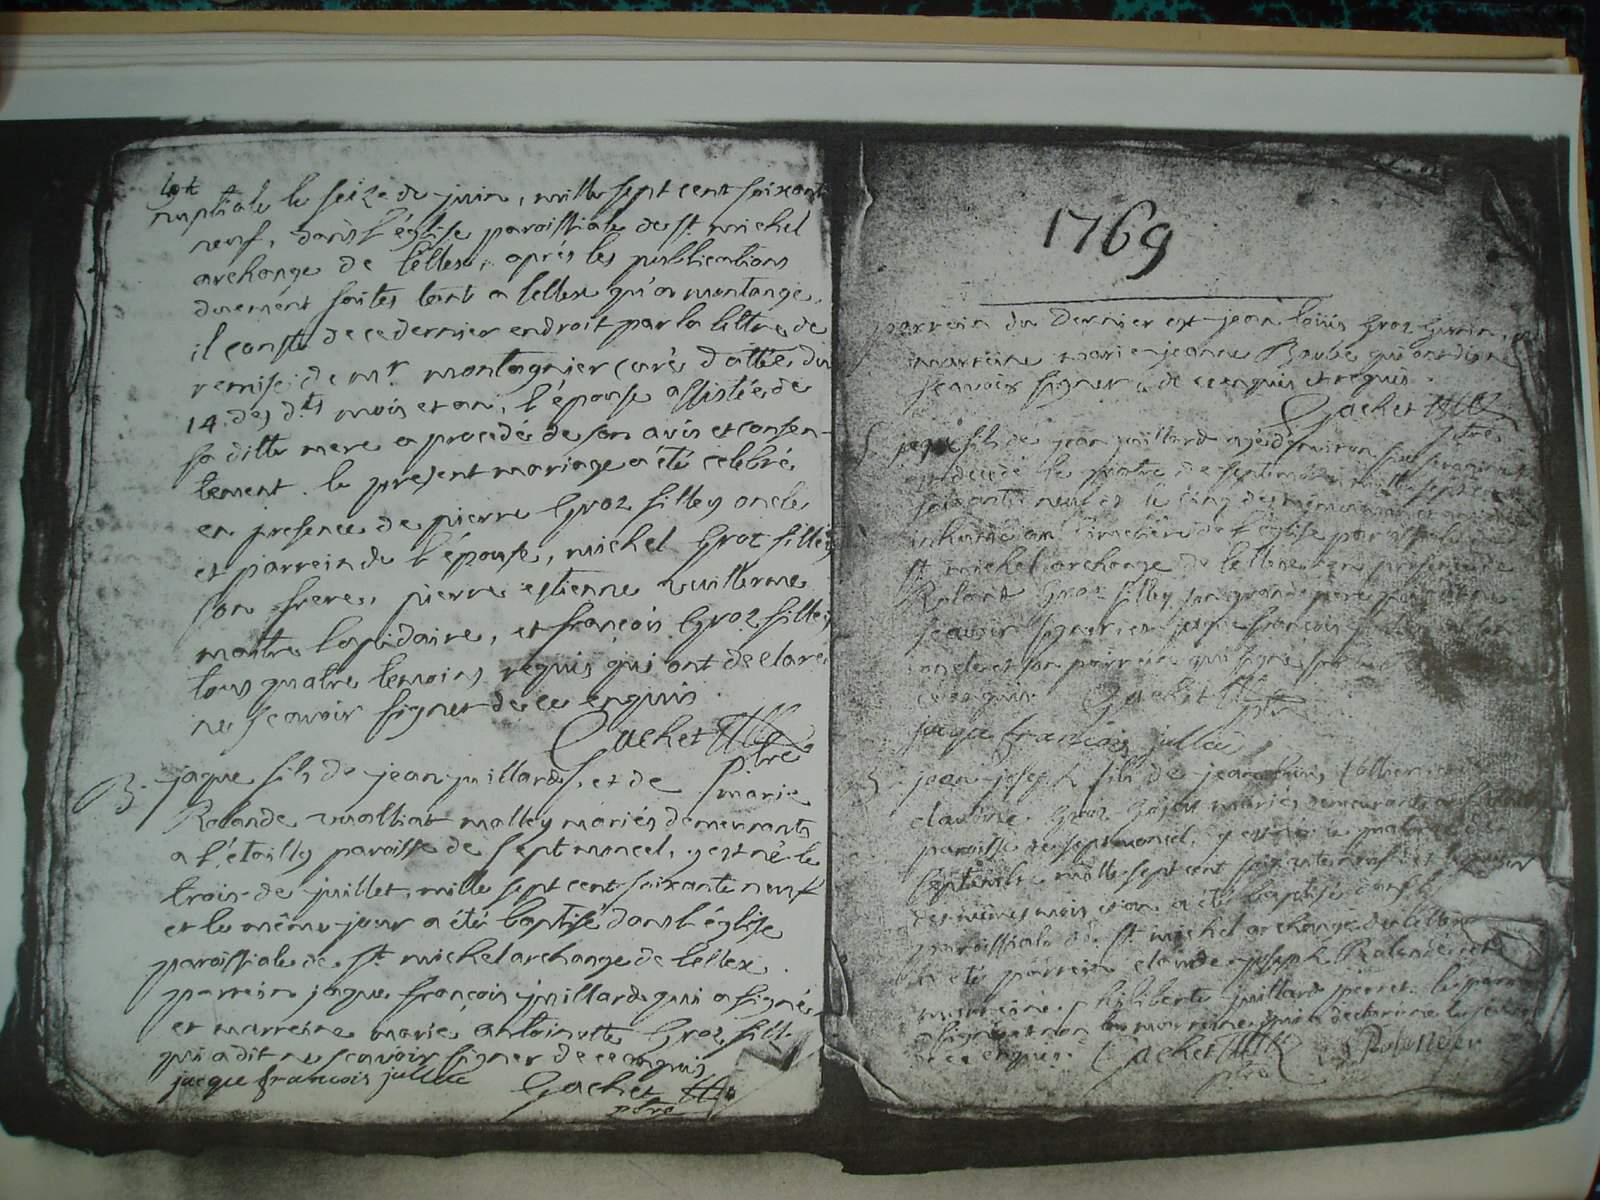 nuptiale le seize de juin, mille sept cent soixante
neuf, dans l'église paroissiale de st. michel
archange de lellex, après les publications
duement faites tant a lellex qu'a montange,
il conste de ce dernier endroit par la lettre de
remise de mr. montagnier curé d'
14. des dts mois et an, l'épouse assistée de
sa ditte mere a procédé de son avis et consen-
tement. le present mariage a été celebré
en presence de pierre Groz filley oncle
et parrein de l'épouse, michel Groz filley
son frere, pierre estienne vuillerme
maitre lapidaire, et françois Groz filley
tous quatre temoins requis qui ont declaré
ne scavoir signer de ce enquis.
Gachet
ptre
B. jaque fils de jean juillard, et de marie
Rolande mariés demeurants
a l'étoilly paroisse de septmoncel, y est né le
trois de juillet, mille sept cent soixante neuf
et le même jour a été baptisé dans l'église
paroissiale de st. michel archange de lellex.
parrein jaque françois juillard qui a signé,
et marreine marie antoinette Groz fille
qui a dit ne scavoir signer de ce enquis
jaque francois jullia Gachet
ptre
1769
parrein du dernier est jean loüis Groz Gurin, et
marreine marie jeanne qui ont dit ne
scavoir signer de ce enquis et requis.
Gachet
ptre
jaque fils de jean juillard agé d'environ
est decedé le quatre de septembre mille sept cent
soixante neuf et le cinq des mêmes mois et an a été
inhumé au cimetière de l'église paroissiale de
st. michel archange de lellex en presence de
Roland Groz filley son grand pere
scavoir signer, et jaque françois
oncle et son parrein qui signe
ce enquis. Gachet
ptre
jaque francois jullia
B. jean joseph fils de jean
claudine Groz mariés demeurants
paroisse de septmoncel, y est né le quatre de
septembre mille sept cent soixante neuf et le
des mêmes mois et an a été baptisé dans l'église
paroissiale de st. michel archange de lellex
a été parrein claude joseph Rolandez et
marreine philiberte juillard perret. le parrein
a signé et non la marreine qui a declaré ne le scavoir
de ce enquis. Gachet
ptre